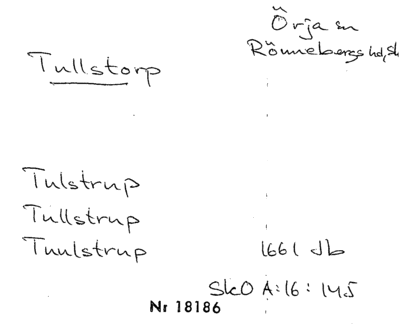 Örja sn
Rönnebergs hd, Sk
Tullstorp
Tulstrup
Tullstrup
Tuulstrup 1661 Jb
SkO A:16: 145
Nr 18186